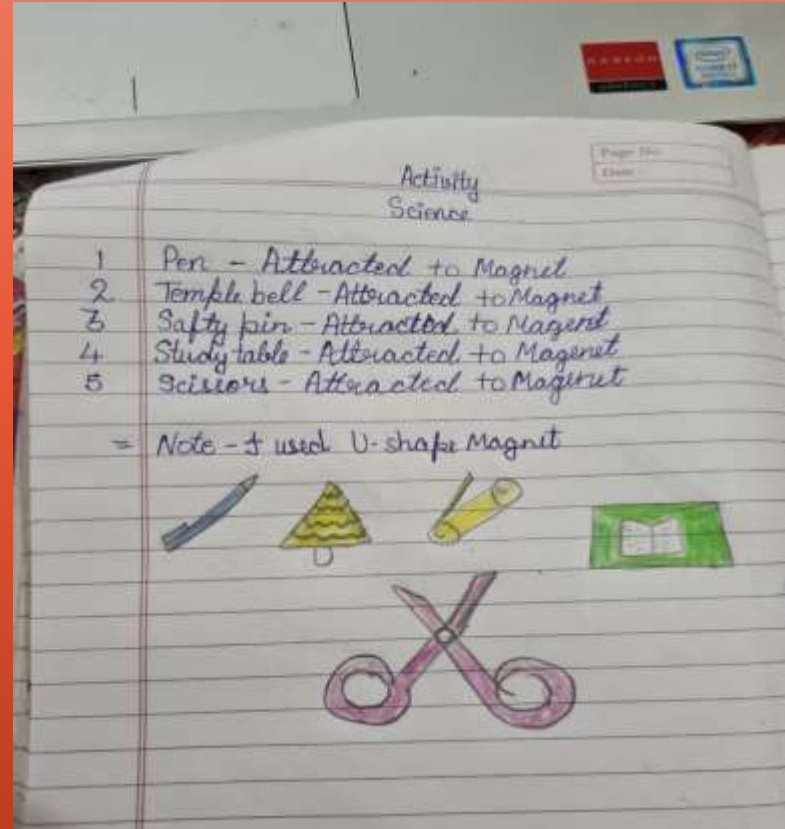 RADEON
GRAPHICS
intel
Page No.
Date
Activity
Science
1 Pen - Attracted to Magnet
2 Temple bell - Attracted to Magnet
3 Safty pin - Attracted to Magent
4 Study table - Attracted to Magenet
5 Scissors - Attracted to Maginut
= Note - I used U-shape Magnet